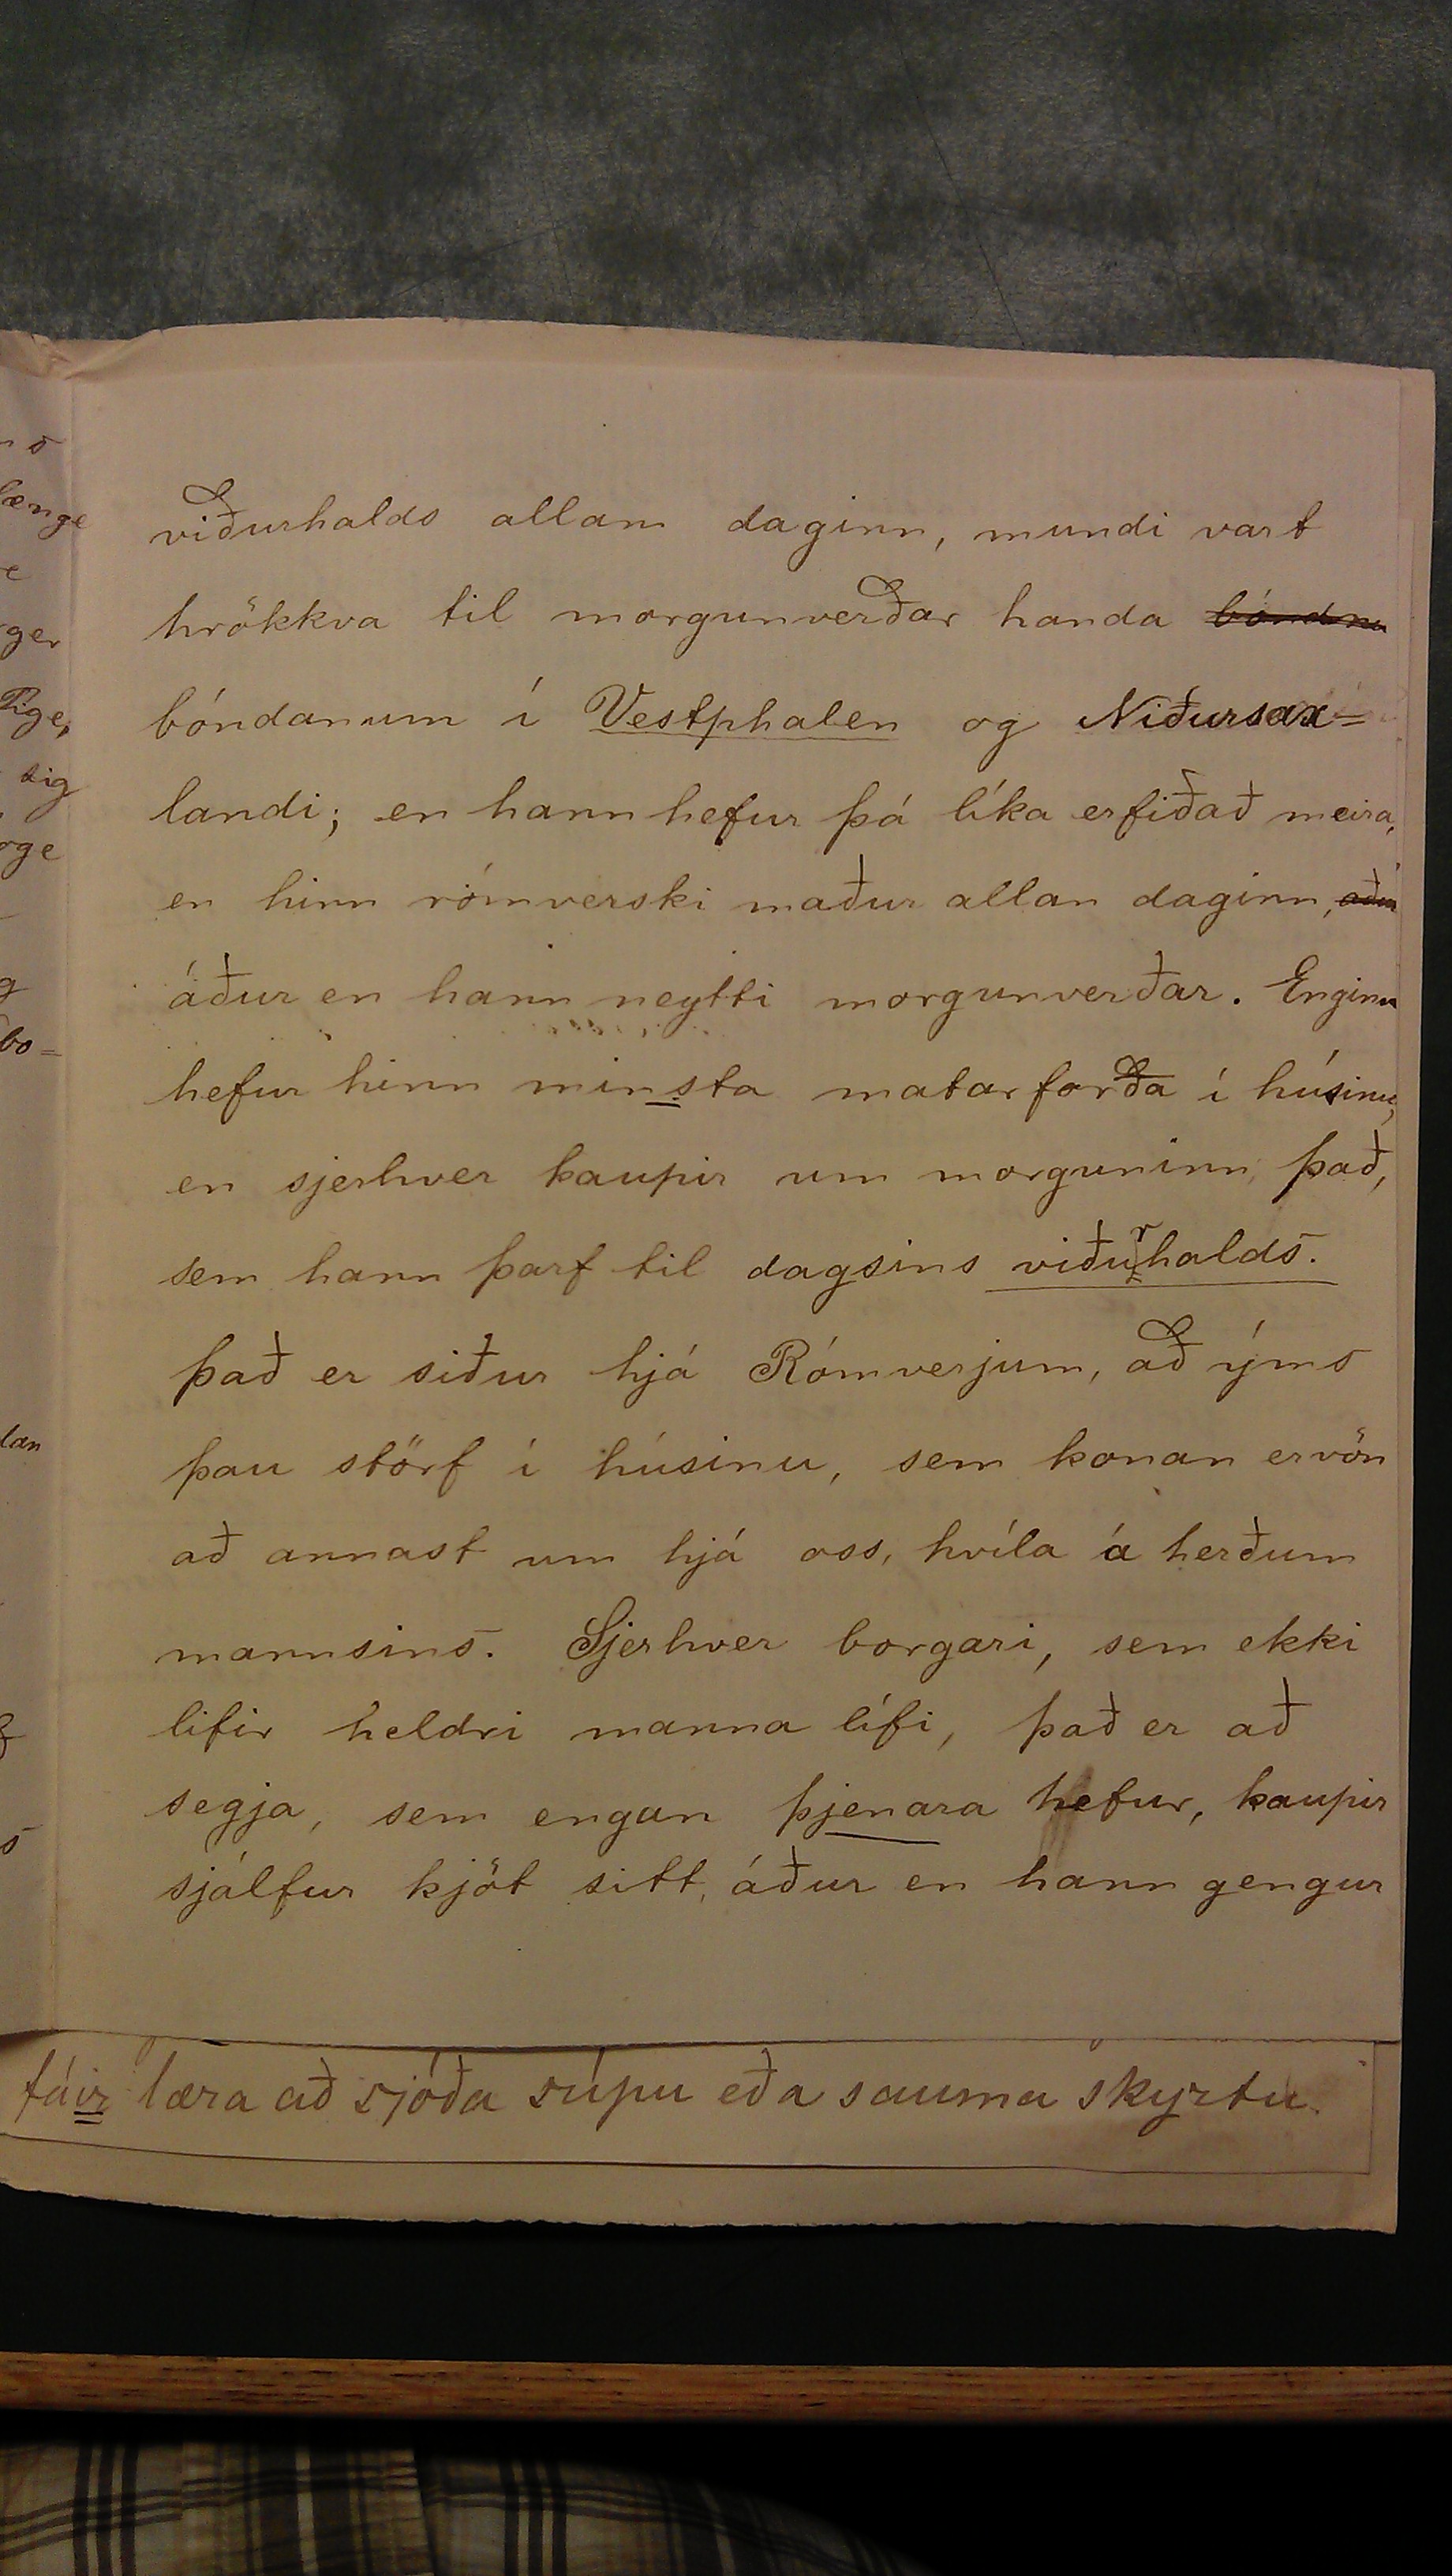 viðurhalds allan daginn, mundi vart
hrökkva til morgunverðar handa bóndnu
bóndanum í Vestphalen og Niðursax=
landi; en hann hefur þá líka erfiðað meira,
en hinn rómverski maður allan daginn, aður
áður en hann neytti morgunverðar. Enginn
hefur hinn minsta matarforða í húsinu,
en sjerhver kaupir um morguninn það,
sem hann þarf til dagsins viðurhalds.
Það er siður hjá Rómverjum, að ýms
þau störf í húsinu, sem konan er vön
að annast um hjá oss, hvíla á herðum
mannsins. Sjerhver borgari, sem ekki
lifir heldri manna lífi, það er að
segja, sem engan þjenara hefur, kaupir
sjálfur kjöt sitt, áður en hann gengur
fáir læra að sjóða súpu eða sauma skyrtu.
længe
ger
Pige,
sig
oge
g
bo=
lan